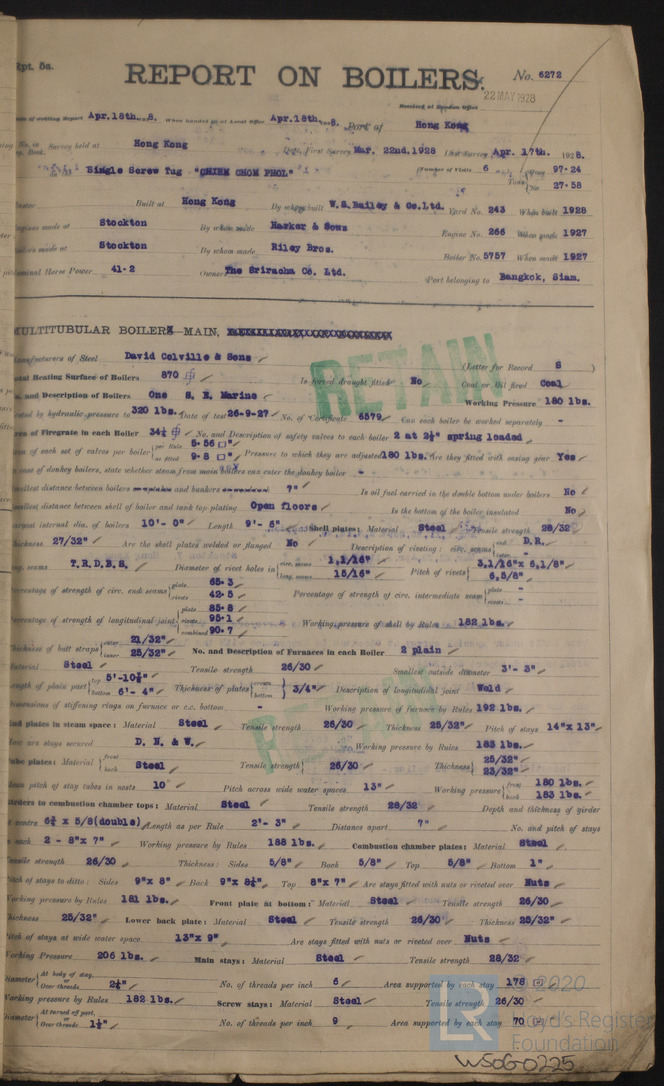 Rpt. 5a.
REPORT ON BOILERS. No. 6272
22 MAY 1928
Received at London Office
Date of writing Report Apr. 18th 8. When handed in at Local Office Apr. 18th 8. Port of Hong Kong
Survey held at Hong Kong Date, First Survey Mar. 22nd. 1928 Last Survey Apr. 17th. 1928.
Single Screw Tug "CHIEN CHOM PHOL" (Number of Visits 6 Gross 97·24
Tons Net 27·58
Master Built at Hong Kong By whom built W.S. Bailey & Co. Ltd. Yard No. 243 When built 1928
Engines made at Stockton By whom made Harker & Sons Engine No. 266 When made 1927
Boilers made at Stockton By whom made Riley Bros. Boiler No. 5757 When made 1927
Nominal Horse Power 41·2 Owners The Sriracha Co. Ltd. Port belonging to Bangkok, Siam.
MULTITUBULAR BOILERS—MAIN,
Manufacturers of Steel David Colville & Sons (Letter for Record S )
RETAIN
Total Heating Surface of Boilers 870 Is forced draught fitted No Coal or Oil fired Coal
No. and Description of Boilers One S. E. Marine Working Pressure 180 lbs.
Tested by hydraulic pressure to 320 lbs. Date of test 26-9-27 No. of Certificate 6579 Can each boiler be worked separately -
Area of Firegrate in each Boiler 34½ No. and Description of safety valves to each boiler 2 at 2½" spring loaded
Area of each set of valves per boiler per Rule 5·56 □" as fitted 9·8 □" Pressure to which they are adjusted 180 lbs. Are they fitted with easing gear Yes
In case of donkey boilers, state whether steam from main boilers can enter the donkey boiler -
Smallest distance between boilers or uptakes and bunkers or woodwork 7" Is oil fuel carried in the double bottom under boilers No
Smallest distance between shell of boiler and tank top plating Open floors Is the bottom of the boiler insulated No
Largest internal dia. of boilers 10'- 0" Length 9'- 6" Shell plates: Material Steel Tensile strength 28/32
Thickness 27/32" Are the shell plates welded or flanged No Description of riveting: circ. seams end D.R. inter. -
Long. seams T.R.D.B.S. Diameter of rivet holes in circ. seams 1,1/16" long. seams 15/16" Pitch of rivets 3,1/16" x 6,1/8" 6,5/8"
Percentage of strength of circ. end seams plate 65·3 rivets 42·5 Percentage of strength of circ. intermediate seam plate - rivets -
Percentage of strength of longitudinal joint plate 85·8 rivets 95·1 combined 90·7 Working pressure of shell by Rules 182 lbs.
Thickness of butt straps outer 21/32" inner 25/32" No. and Description of Furnaces in each Boiler 2 plain
Material Steel Tensile strength 26/30 Smallest outside diameter 3'- 3"
Length of plain part top 5'-10½" bottom 6'- 4" Thickness of plates crown bottom 3/4" Description of longitudinal joint Weld
Dimensions of stiffening rings on furnace or c.c. bottom - Working pressure of furnace by Rules 192 lbs.
RETAIN
End plates in steam space: Material Steel Tensile strength 26/30 Thickness 25/32" Pitch of stays 14" x 13"
How are stays secured D. N. & W. Working pressure by Rules 183 lbs.
Tube plates: Material front back Steel Tensile strength 26/30 Thickness 25/32" 23/32"
Mean pitch of stay tubes in nests 10" Pitch across wide water spaces 13" Working pressure front 180 lbs. back 183 lbs.
Girders to combustion chamber tops: Material Steel Tensile strength 28/32 Depth and thickness of girder
at centre 6¼ x 5/8(double) Length as per Rule 2'- 3" Distance apart 7" No. and pitch of stays
in each 2 - 8" x 7" Working pressure by Rules 188 lbs. Combustion chamber plates: Material Steel
Tensile strength 26/30 Thickness: Sides 5/8" Back 5/8" Top 5/8" Bottom 1"
Pitch of stays to ditto: Sides 9" x 8" Back 9" x 8½" Top 8" x 7" Are stays fitted with nuts or riveted over Nuts
Working pressure by Rules 181 lbs. Front plate at bottom: Material Steel Tensile strength 26/30
Thickness 25/32" Lower back plate: Material Steel Tensile strength 26/30 Thickness 25/32"
Pitch of stays at wide water space 13" x 9" Are stays fitted with nuts or riveted over Nuts
Working Pressure 206 lbs. Main stays: Material Steel Tensile strength 28/32
Diameter At body of stay, or Over threads 2¼" No. of threads per inch 6 Area supported by each stay 178
Working pressure by Rules 182 lbs. Screw stays: Material Steel Tensile strength 26/30
Diameter At turned off part, or Over threads 1½" No. of threads per inch 9 Area supported by each stay 70
LR © 2020
Lloyd's Register
Foundation
WSOG-0225